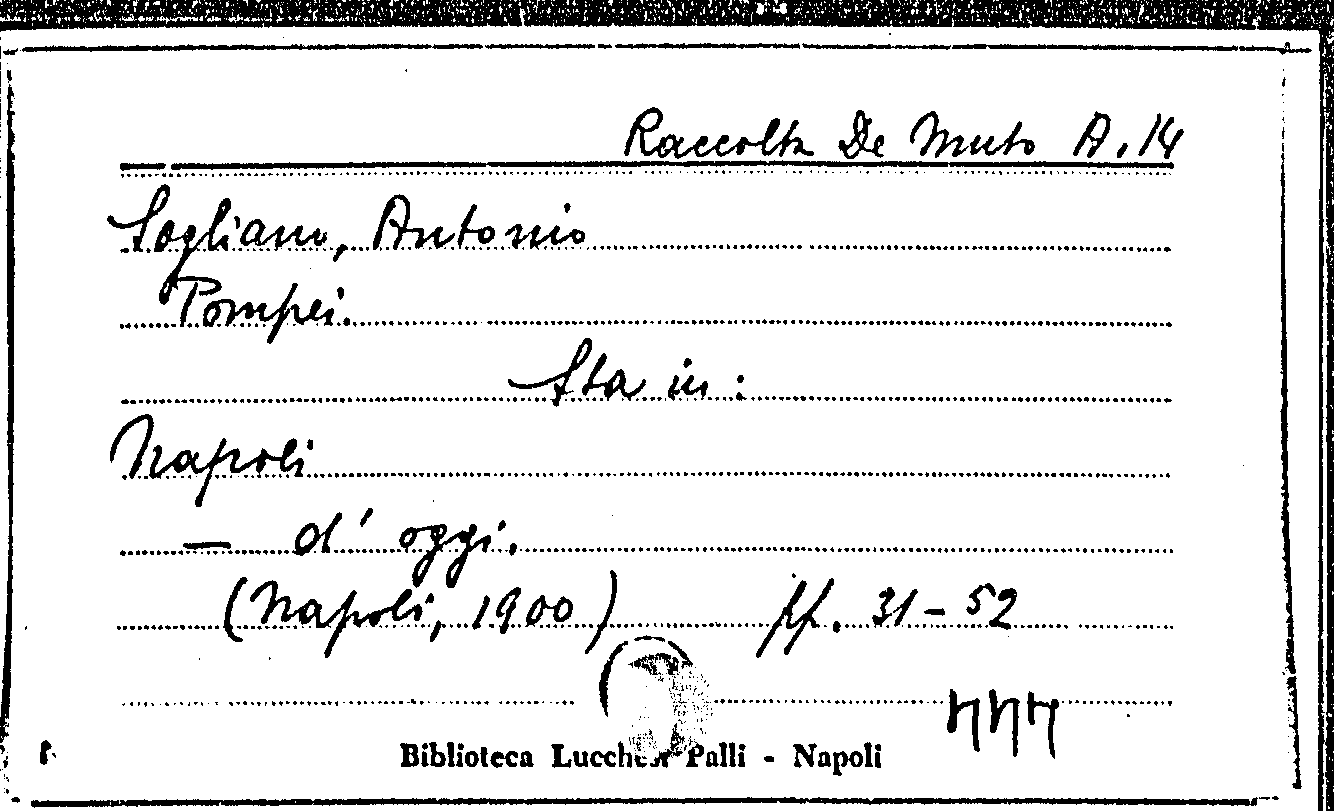 Raccolta De Muto A.14
Sogliano, Antonio
Pompei.
Sta in:
Napoli
— d'oggi.
(Napoli, 1900) pp. 31-52
Biblioteca Lucchesi Palli - Napoli